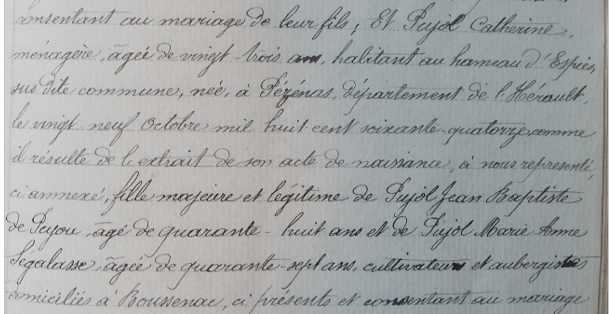 consentant au mariage de leur fils; Et Pujol Catherine,
ménagère, âgée de vingt-trois ans, habitant au hameau d'Espiès,
sus dite commune, née, à Pézénas, département de l'Hérault,
le vingt neuf Octobre mil huit cent soixante-quatorze, comme
il résulte de l'extrait de son acte de naissance, à nous représenté,
ci annexé, fille majeure et légitime de Pujol Jean Baptiste
de Peyou, âgé de quarante-huit ans et de Pujol Marie Anne
Ségalasse, âgée de quarante-sept ans, cultivateurs et aubergistes
domiciliés à Boussenac, ci présents et consentant au mariage